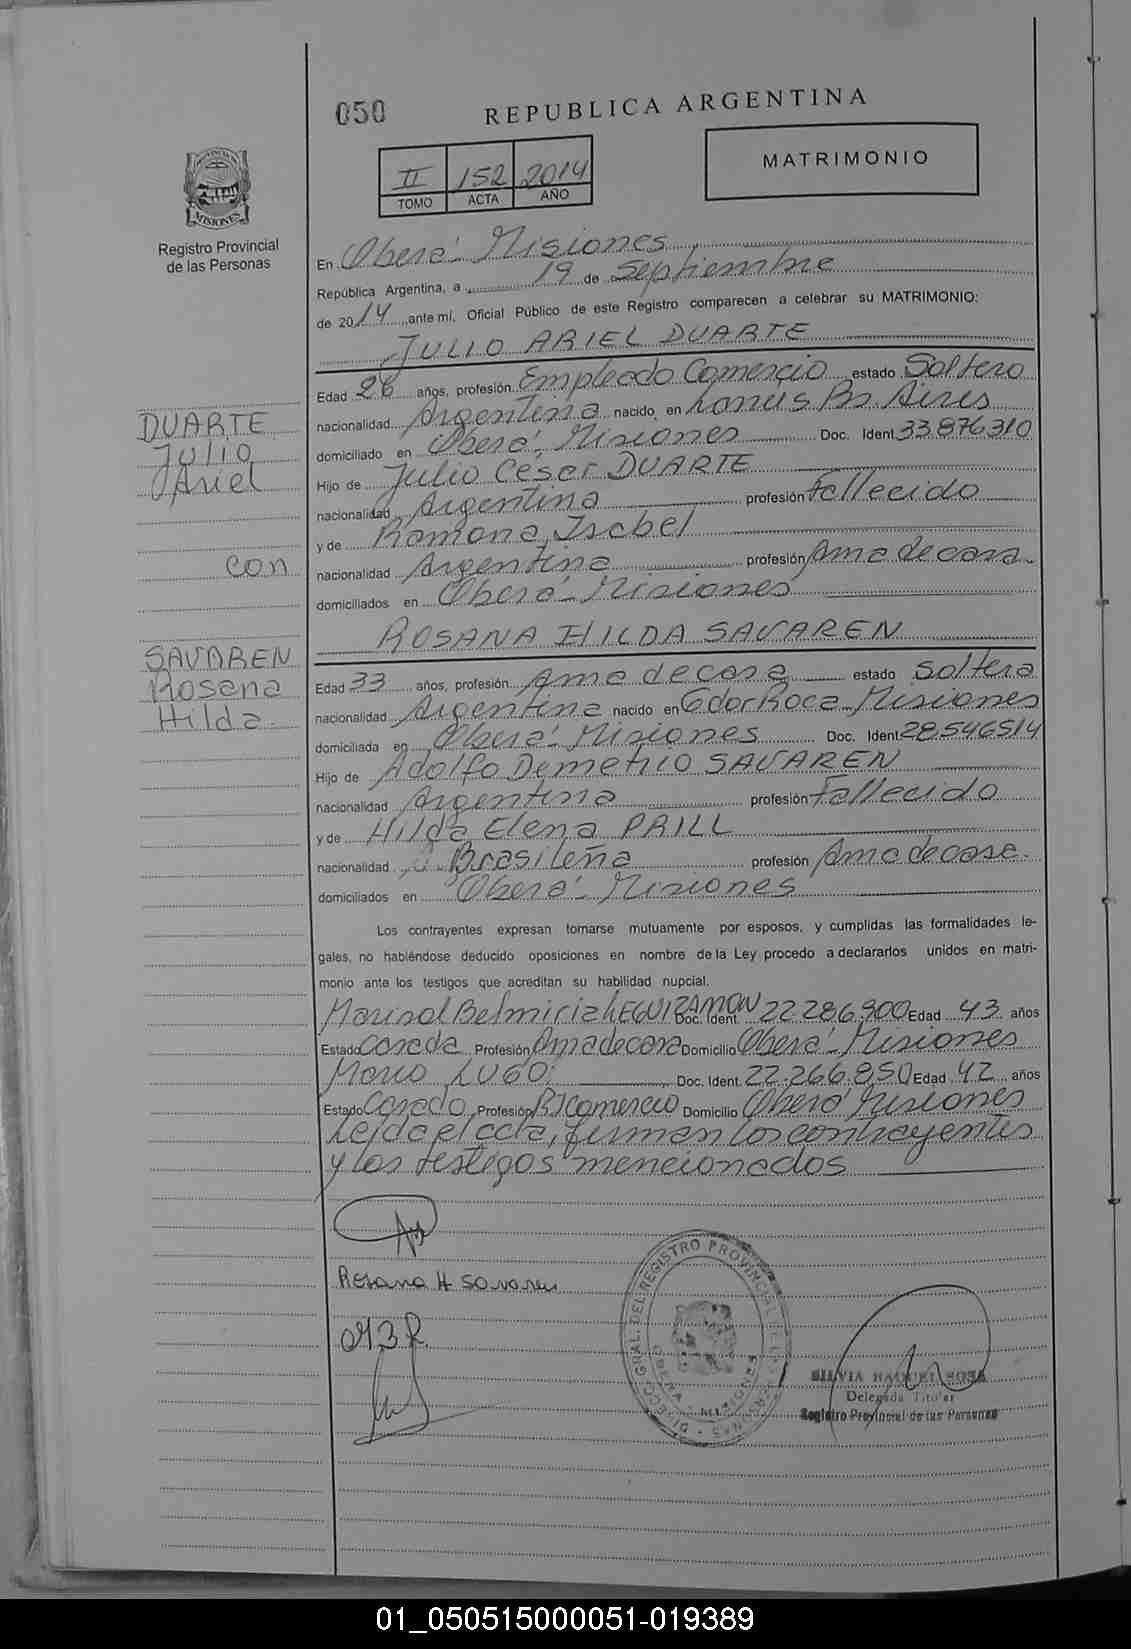 050
REPUBLICA ARGENTINA
II 152 2014
TOMO ACTA AÑO
MATRIMONIO
PROVINCIA DE
MISIONES
Registro Provincial
de las Personas
En Oberá - Misiones
República Argentina, a 19 de Septiembre
de 2014 ante mí, Oficial Público de este Registro comparecen a celebrar su MATRIMONIO:
JULIO ARIEL DUARTE
Edad 26 años, profesión Empleado Comercio estado Soltero
nacionalidad Argentina nacido en Lanus Bs. Aires
domiciliado en Oberá, Misiones Doc. Ident 33.876310
Hijo de Julio Cesar DUARTE
nacionalidad Argentina profesión Fallecido
y de Ramona Isabel
nacionalidad Argentina profesión Ama de casa
domiciliados en Oberá - Misiones
DUARTE
Julio
Ariel
con
SAVAREN
Rosana
Hilda.
ROSANA HILDA SAVAREN
Edad 33 años, profesión Ama de casa estado Soltera
nacionalidad Argentina nacido en Gdor Roca - Misiones
domiciliada en Oberá - Misiones Doc. Ident 28546514
Hijo de Adolfo Demetrio SAVAREN
nacionalidad Argentina profesión Fallecido
y de Hilda Elena PRILL
nacionalidad Brasileña profesión Ama de casa.
domiciliados en Oberá - Misiones
Los contrayentes expresan tomarse mutuamente por esposos, y cumplidas las formalidades le-
gales, no habiéndose deducido oposiciones en nombre de la Ley procedo a declararlos unidos en matri-
monio ante los testigos que acreditan su habilidad nupcial.
Marisol Belmiria LEGUIZAMON Doc. Ident. 22.286.900 Edad 43 años
Estado Casada Profesión Ama de casa Domicilio Oberá - Misiones
Mario LUGO Doc. Ident. 22.266.850 Edad 42 años
Estado Casado Profesión Domicilio Oberá Misiones
Leida el acta, firman los contrayentes
y los testigos mencionados
Rosana H Savaren
DIRECC. GRAL. DEL REGISTRO PROVINCIAL DE LAS PERSONAS
OBERA - MISIONES
SILVIA RAQUEL SOSA
Delegada Titular
Registro Provincial de las Personas
01_050515000051-019389